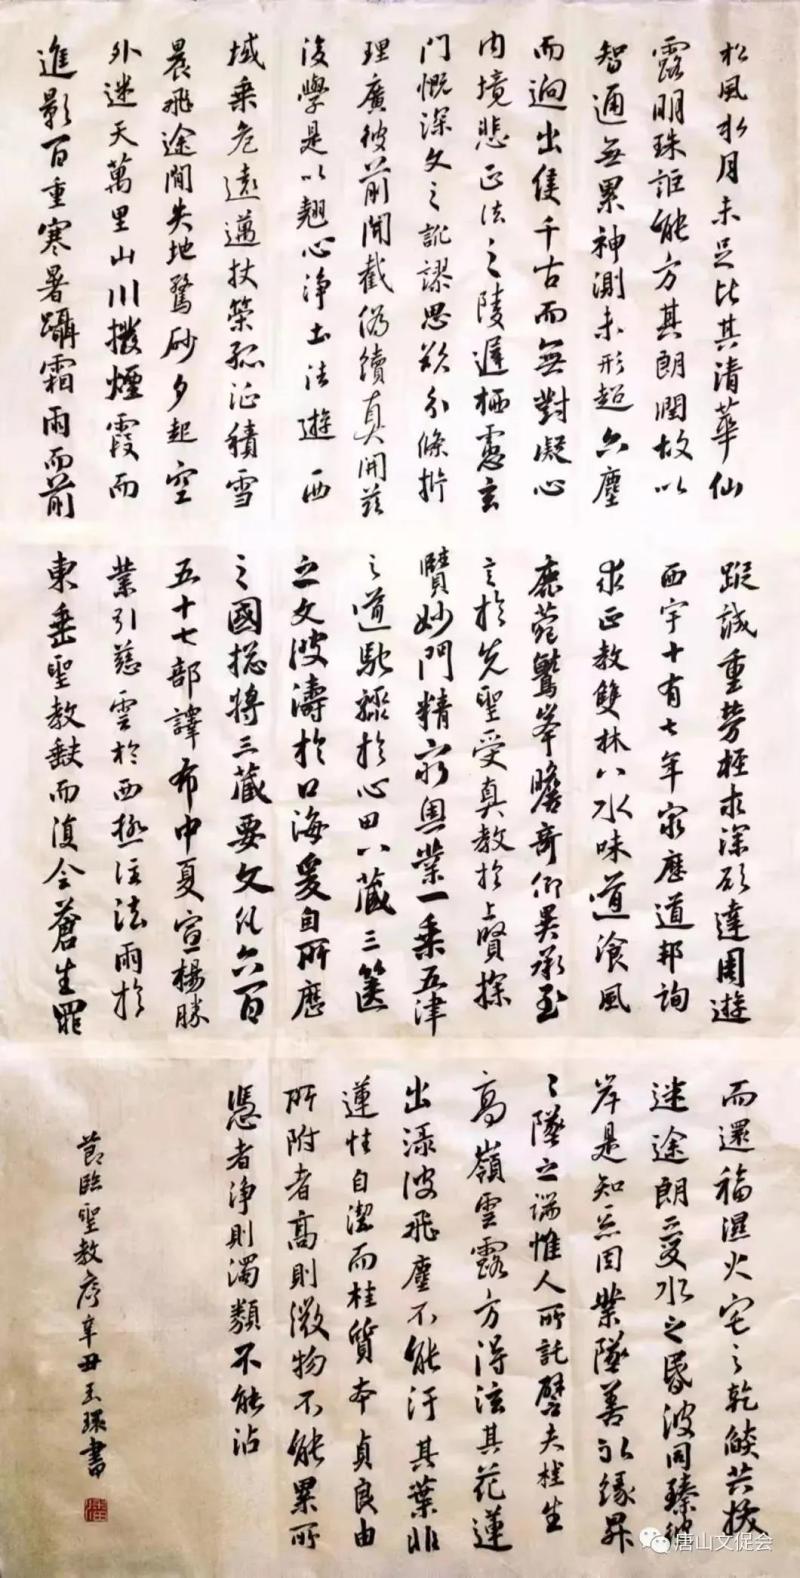 松風水月未足比其清華仙
露明珠詎能方其朗潤故以
智通無累神測未形超六塵
而迥出隻千古而無對凝心
內境悲正法之陵遲栖慮玄
門慨深文之訛謬思欲分條析
理廣彼前聞截偽續真開茲
後學是以翹心淨土法遊西
域乘危遠邁杖策孤征積雪
晨飛途間失地驚砂夕起空
外迷天萬里山川撥煙霞而
進影百重寒暑躡霜雨而前
蹤誠重勞輕求深願達周遊
西宇十有七年窮歷道邦詢
求正教雙林八水味道湌風
鹿菀鷲峯瞻奇仰異承至
言於先聖受真教於上賢探
賾妙門精窮奧業一乘五津
之道馳驟於心田八藏三篋
之文波濤於口海爰自所歷
之國揔將三藏要文凡六百
五十七部譯布中夏宣揚勝
業引慈雲於西極注法雨於
東垂聖教缺而復全蒼生罪
而還福濕火宅之乾燄共拔
迷途朗愛水之昏波同臻彼
岸是知惡因業墜善以緣昇
々墜之端惟人所託譬夫桂生
高嶺雲露方得泫其花蓮
出淥波飛塵不能汙其葉非
蓮性自潔而桂質本貞良由
所附者高則微物不能累所
憑者淨則濁類不能沾
節臨聖教序辛丑王環書
唐山文促会